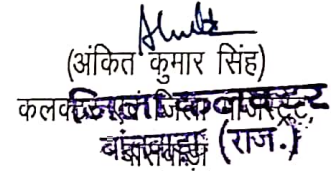 (अंकित कुमार सिंह)
कलक्टर एवं जिला मजिस्ट्रेट,
बांसवाड़ा
जिला कलक्टर
बांसवाड़ा (राज.)